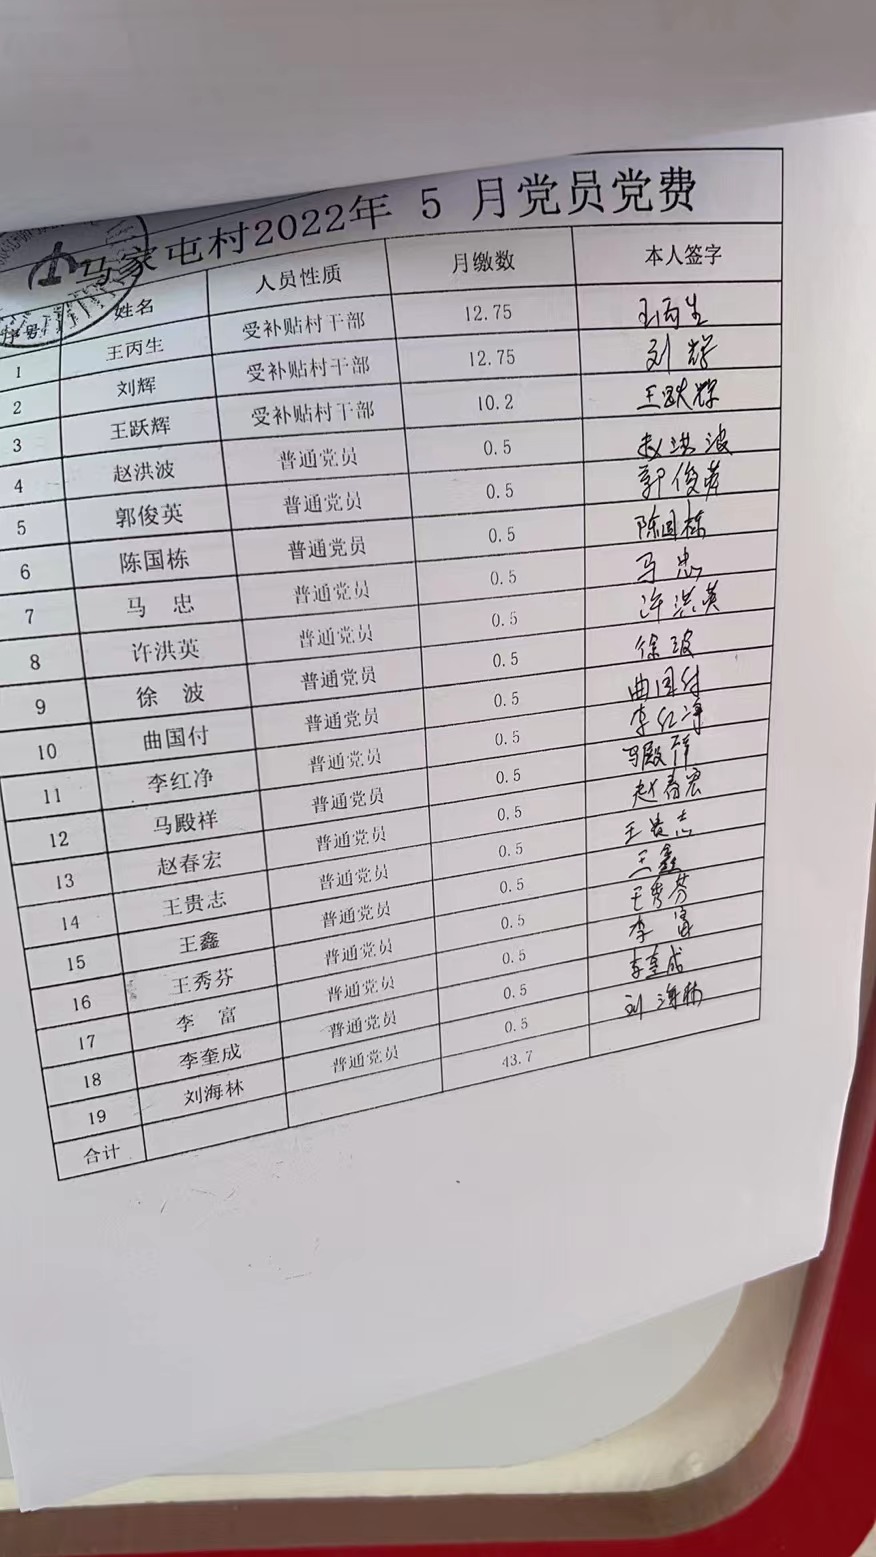 马家屯村2022年 5 月党员党费
序号 姓名 人员性质 月缴数 本人签字
1 王丙生 受补贴村干部 12.75 王丙生
2 刘辉 受补贴村干部 12.75 刘辉
3 王跃辉 受补贴村干部 10.2 王跃辉
4 赵洪波 普通党员 0.5 赵洪波
5 郭俊英 普通党员 0.5 郭俊英
6 陈国栋 普通党员 0.5 陈国栋
7 马 忠 普通党员 0.5 马忠
8 许洪英 普通党员 0.5 许洪英
9 徐 波 普通党员 0.5 徐波
10 曲国付 普通党员 0.5 曲国付
11 李红净 普通党员 0.5 李红净
12 马殿祥 普通党员 0.5 马殿祥
13 赵春宏 普通党员 0.5 赵春宏
14 王贵志 普通党员 0.5 王贵志
15 王鑫 普通党员 0.5 王鑫
16 王秀芬 普通党员 0.5 王秀芬
17 李 富 普通党员 0.5 李富
18 李奎成 普通党员 0.5 李奎成
19 刘海林 普通党员 0.5 刘海林
合计 43.7